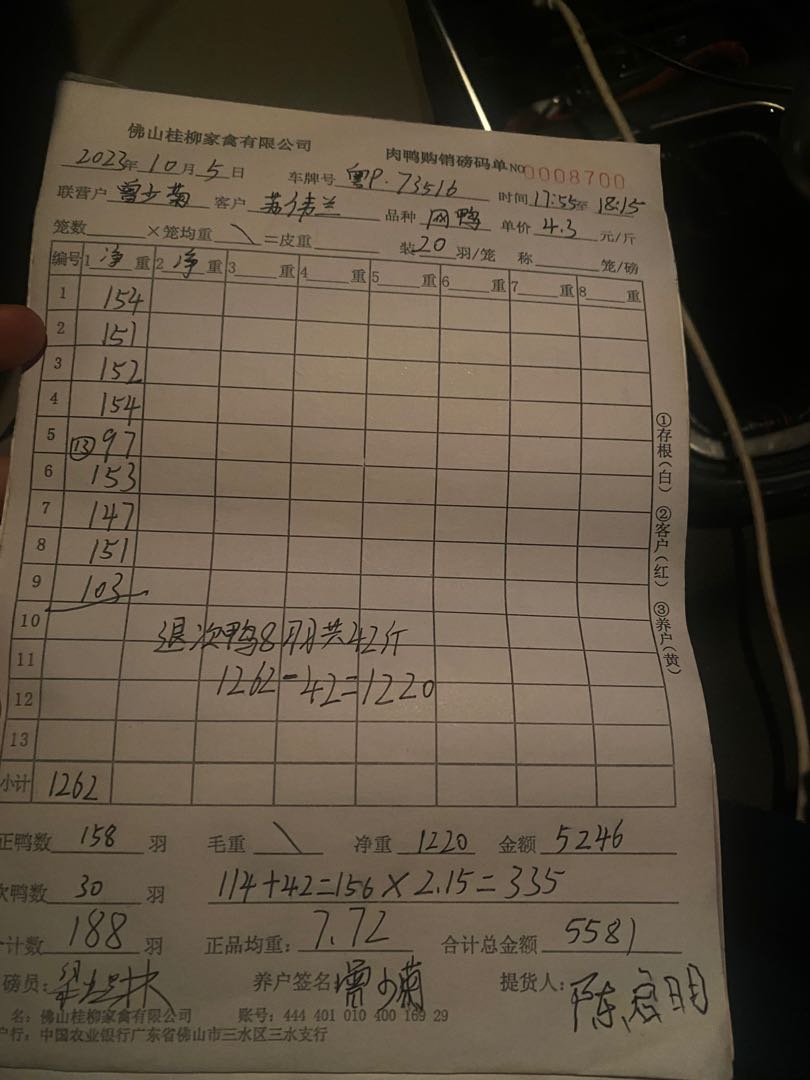 佛山桂柳家禽有限公司 肉鸭购销磅码单 No 0008700
2023年10月5日 车牌号 粤P·73516 时间17:55至18:15
联营户 曾少菊 客户 苏伟兰 品种 网鸭 单价 4.3 元/斤
笼数 ×笼均重 \ =皮重 装20羽/笼 称 笼/磅
编号 1净重 2净重 3重 4重 5重 6重 7重 8重
1 154
2 151
3 152
4 154
5 ⑬97
6 153
7 147
8 151
9 103
10
退次鸭8只共42斤
11
1262-42=1220
12
13
小计 1262
①存根(白) ②客户(红) ③养户(黄)
正鸭数 158 羽 毛重 \ 净重 1220 金额 5246
次鸭数 30 羽 114+42=156×2.15=335
计数 188 羽 正品均重: 7.72 合计总金额 5581
磅员: 养户签名: 曾少菊 提货人: 陈启明
名: 佛山桂柳家禽有限公司 账号: 444 401 010 400 169 29
户行: 中国农业银行广东省佛山市三水区三水支行